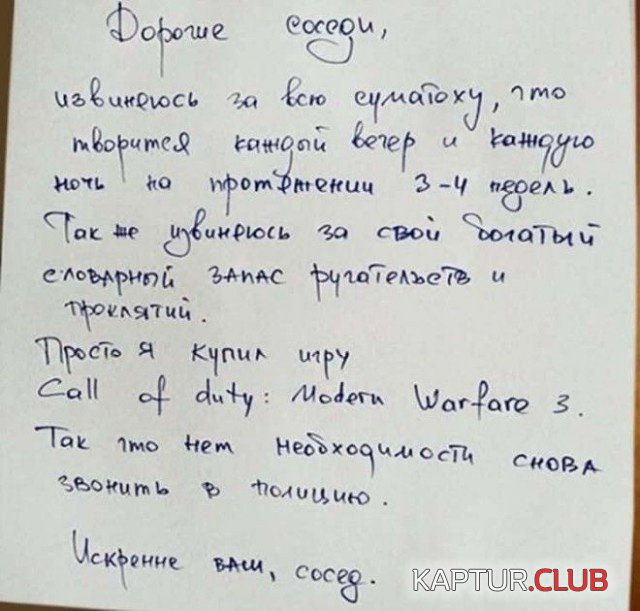 Дорогие соседи,
извиняюсь за всю суматоху, что
творится каждый вечер и каждую
ночь на протяжении 3-4 недель.
Так же извиняюсь за свой богатый
словарный запас ругательств и
проклятий.
Просто я купил игру
Call of duty: Modern Warfare 3.
Так что нет необходимости снова
звонить в полицию.
Искренне ваш, сосед.
KAPTUR.CLUB